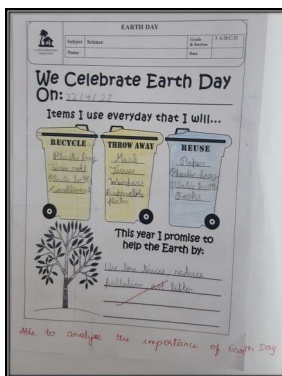 EARTH DAY
Subject Science
Grade & Section 3 A/B/C/D
Name
Date
We Celebrate Earth Day
On: 22/4/22
Items I use everyday that I will...
RECYCLE
Plastic bag
Plastic bottle
Cardboard
THROW AWAY
Mask
Tissue
Disposable
plates
REUSE
Paper
Plastic bags
Plastic bottle
Books
This year I promise to
help the Earth by:
Use less tissue reduce
pollution not litter
Able to analyse the importance of Earth Day